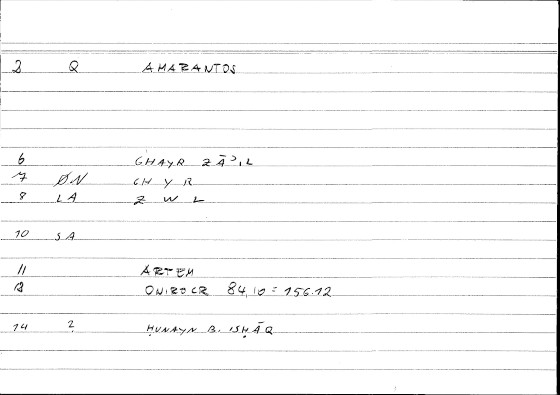 2 Q AMARANTOS
6 GHAYR ZĀʾIL
7 ØN GH Y R
8 LA Z W L
10 SA
11 ARTEM
12 ONIROCR 84,10 = 156.12
14 2 ḤUNAYN B. ISḤĀQ